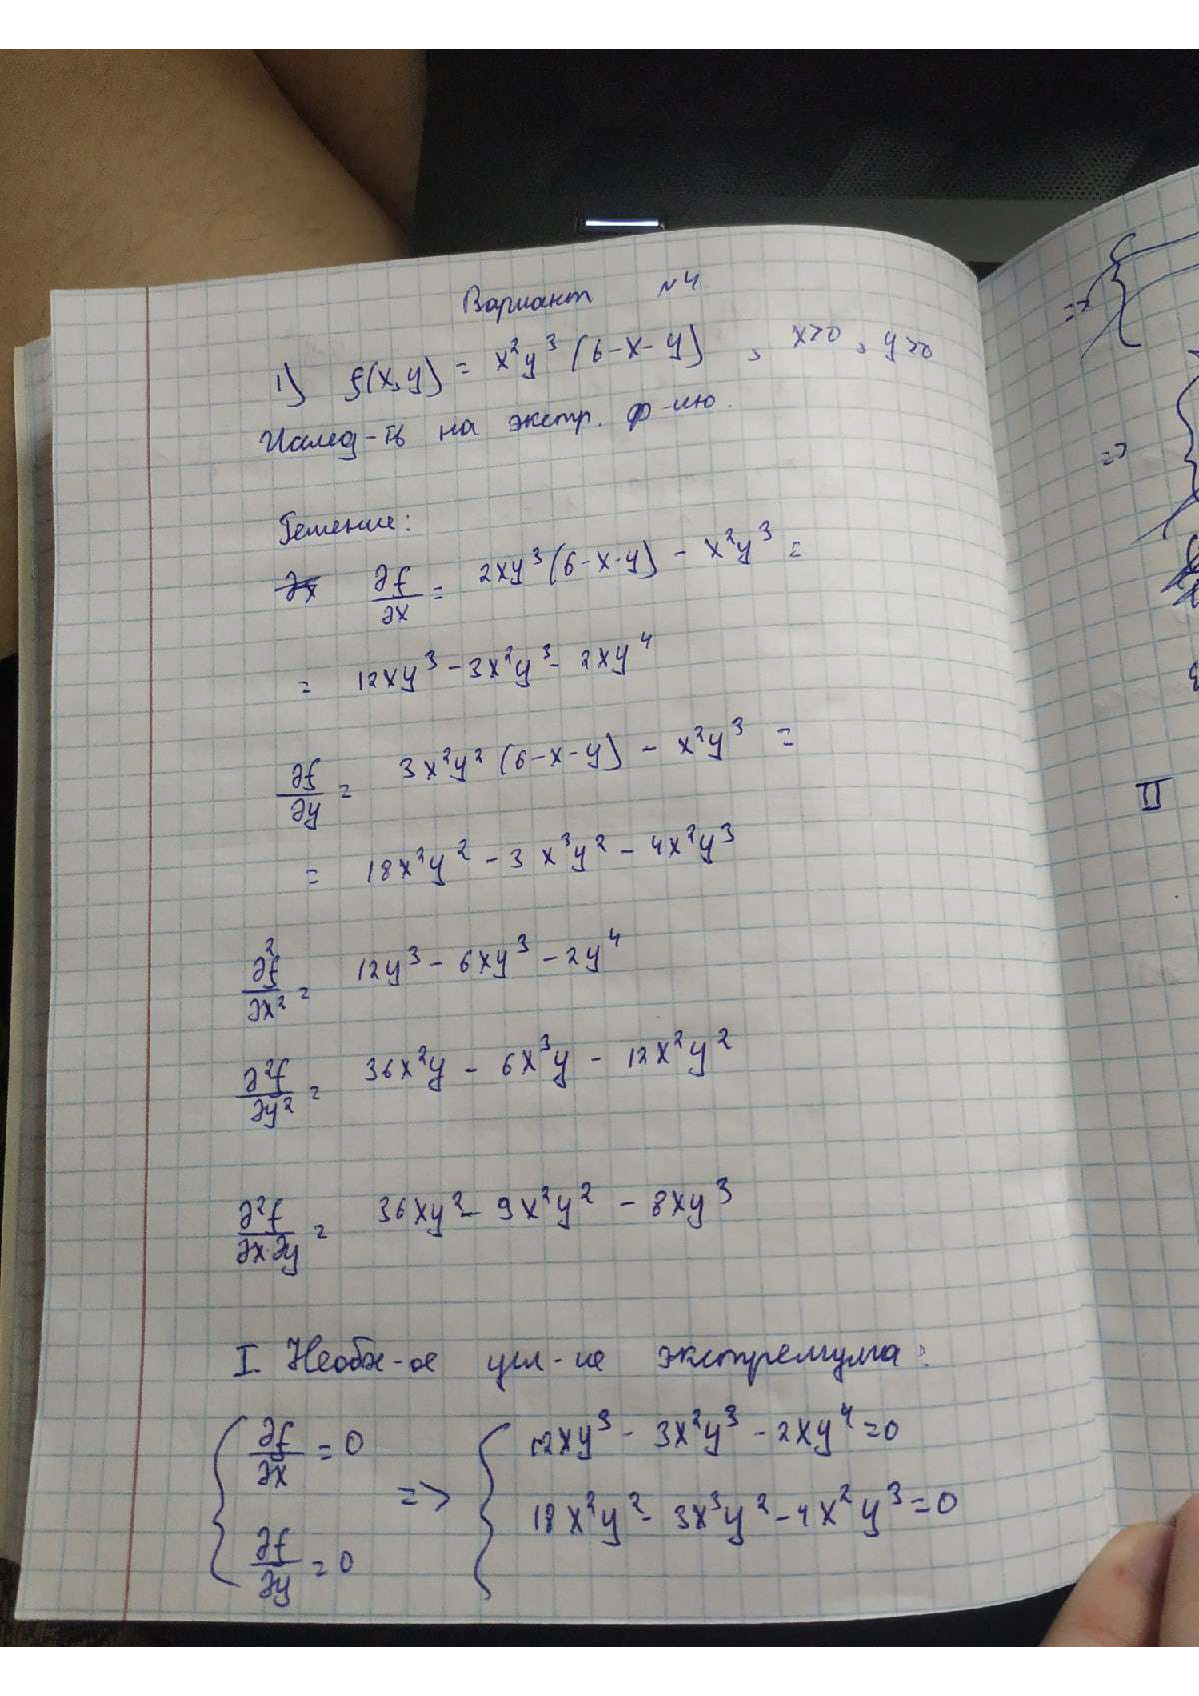 Вариант №4
1) f(x,y) = x²y³(6-x-y), x>0, y>0
Исслед-ть на экстр. ф-ию.
Решение:
∂f/∂x = 2xy³(6-x-y) - x²y³ =
= 12xy³ - 3x²y³ - 2xy⁴
∂f/∂y = 3x²y²(6-x-y) - x²y³ =
= 18x²y² - 3x³y² - 4x²y³
∂²f/∂x² = 12y³ - 6xy³ - 2y⁴
∂²f/∂y² = 36x²y - 6x³y - 12x²y²
∂²f/∂x∂y = 36xy² - 9x²y² - 8xy³
I. Необх-ое усл-ие экстремума:
{ ∂f/∂x = 0 => { 12xy³ - 3x²y³ - 2xy⁴ = 0
∂f/∂y = 0 18x²y² - 3x³y² - 4x²y³ = 0
=> {
=>
II